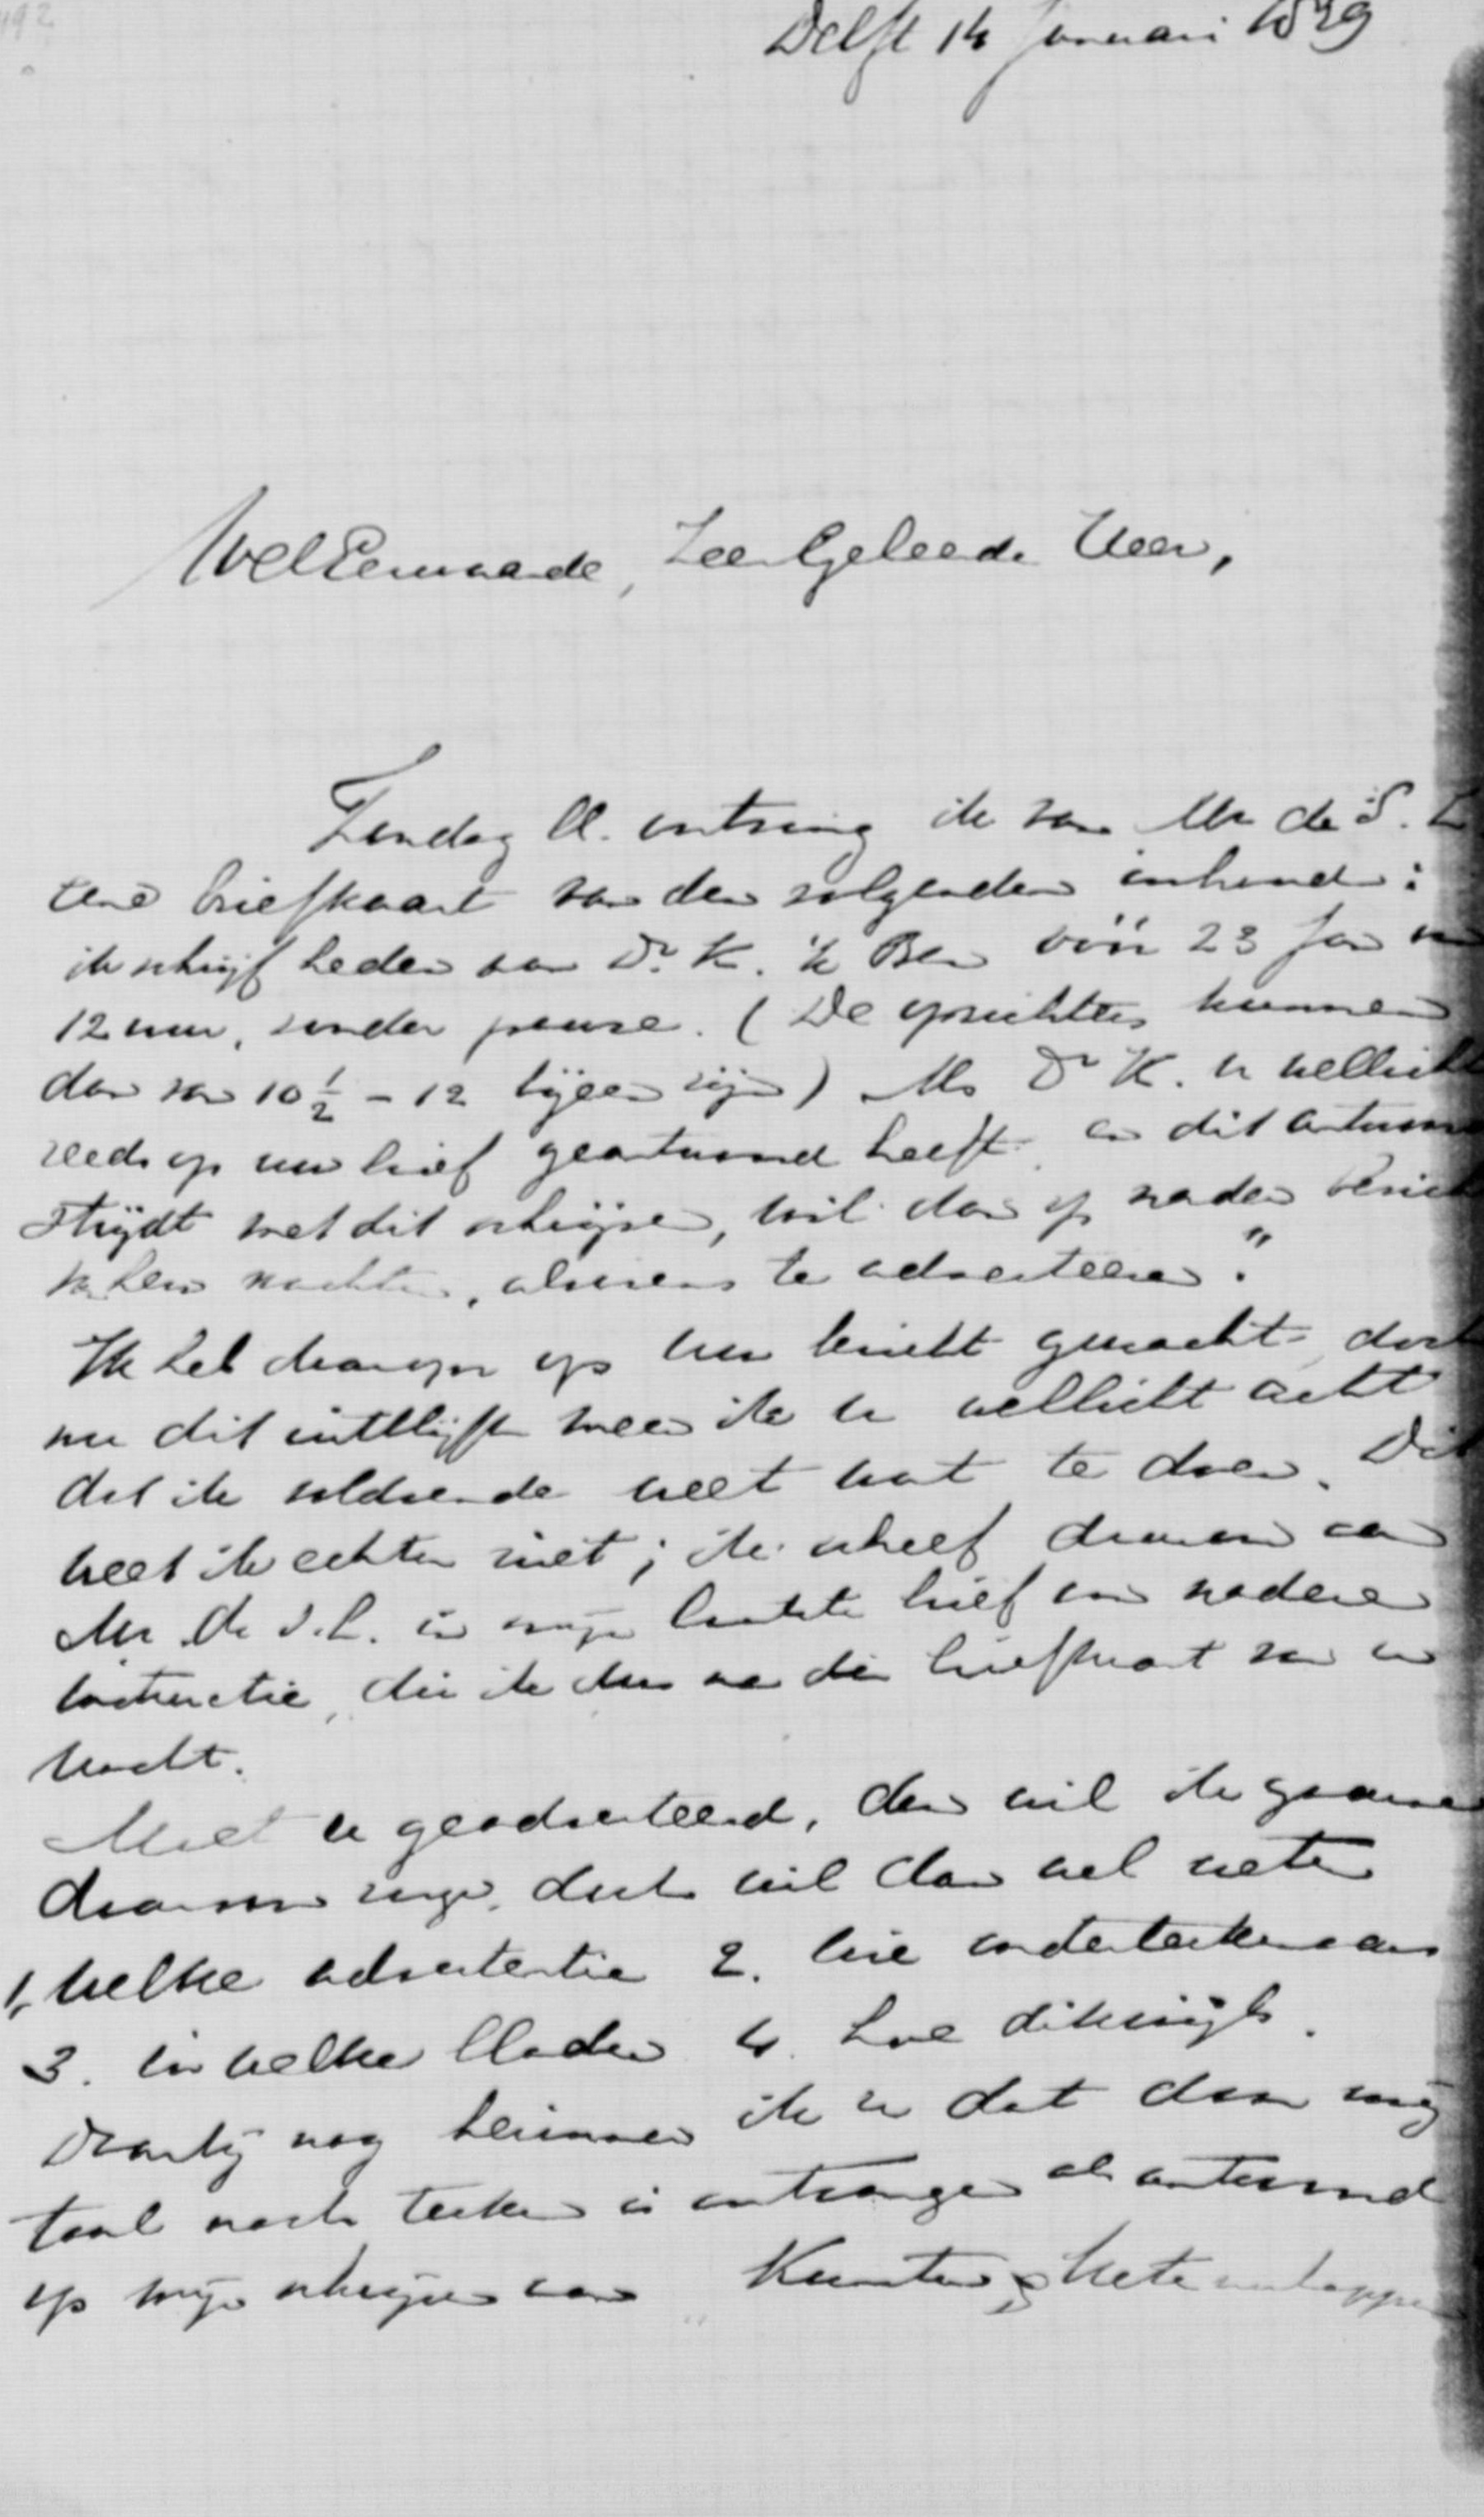 Delft 14 Januari 1879
WelEerwaarde, Zeer Geleerde Heer,
Zondag ll. ontving ik van Mr de S. L
eene briefkaart van den volgenden inhoud:
ik schrijf heden aan Dr K. 'k Ben vóór 23 Jan
12 uur, zonder pauze. (De oprichters kunnen
dan van 10 1/2 - 12 bijeen zijn) Als Dr K. u wellicht
reeds op uw brief geantwoord heeft en dit antwoord
strijdt met dit schrijven, wil dan op nader bericht
van hem wachten, alvorens te adverteeren."
Ik heb daarop op uw bericht gewacht doch
nu dit uitblijft meen ik u wellicht acht
dat ik voldoende weet wat te doen. Dit
weet ik echter niet; ik schreef daarom aan
Mr de S. L. in mijn laatste brief om nadere
instructie, die ik dus na die briefkaart van u
wacht.
Moet er geadverteerd, dan wil ik gaarne
daarvoor zorgen, doch wil dan wel weten
1. welke advertentie 2. wie onderteekenaars
3. in welke bladen 4. hoe dikwijls.
Daarbij nog herinner ik u dat door mij
taal noch teeken is ontvangen als antwoord
op mijn schrijven aan Kunsten & Wetenschappen